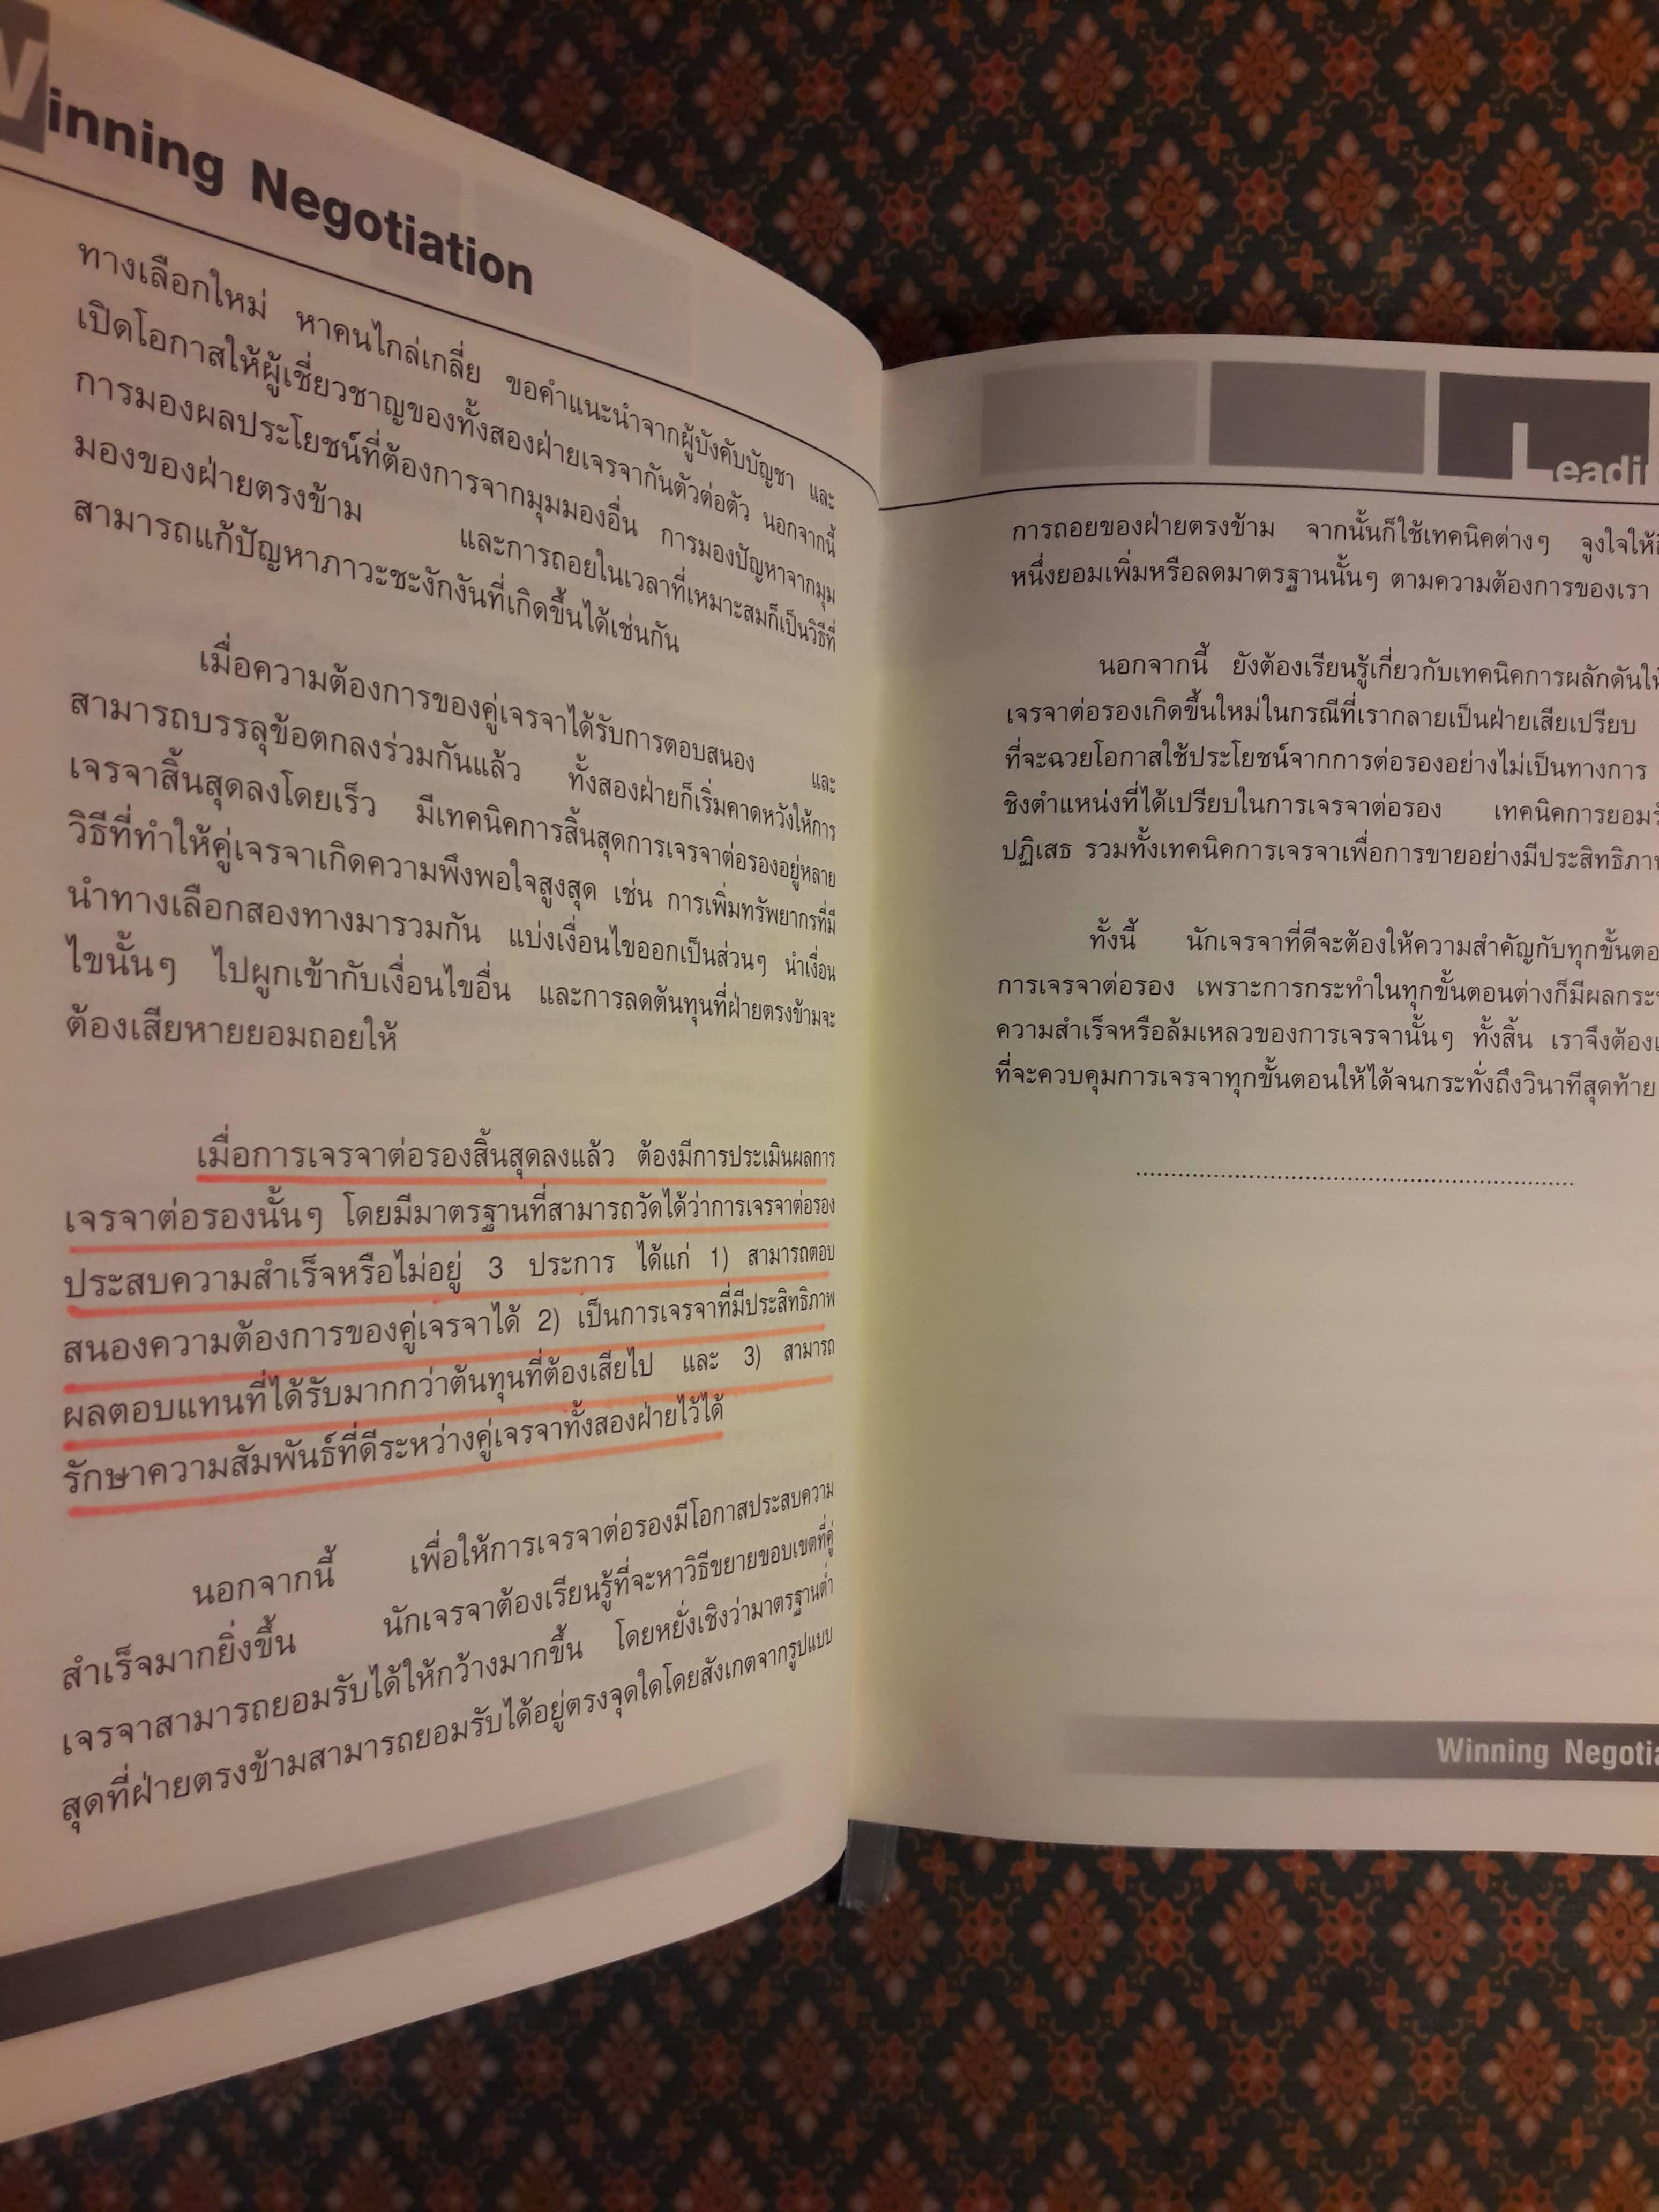 Winning Negotiation
ทางเลือกใหม่ หาคนไกล่เกลี่ย ขอคำแนะนำจากผู้บังคับบัญชา และ
เปิดโอกาสให้ผู้เชี่ยวชาญของทั้งสองฝ่ายเจรจากันตัวต่อตัว นอกจากนี้
การมองผลประโยชน์ที่ต้องการจากมุมมองอื่น การมองปัญหาจากมุม
มองของฝ่ายตรงข้าม และการถอยในเวลาที่เหมาะสมก็เป็นวิธีที่
สามารถแก้ปัญหาภาวะชะงักงันที่เกิดขึ้นได้เช่นกัน
เมื่อความต้องการของคู่เจรจาได้รับการตอบสนอง และ
สามารถบรรลุข้อตกลงร่วมกันแล้ว ทั้งสองฝ่ายก็เริ่มคาดหวังให้การ
เจรจาสิ้นสุดลงโดยเร็ว มีเทคนิคการสิ้นสุดการเจรจาต่อรองอยู่หลาย
วิธีที่ทำให้คู่เจรจาเกิดความพึงพอใจสูงสุด เช่น การเพิ่มทรัพยากรที่มี
นำทางเลือกสองทางมารวมกัน แบ่งเงื่อนไขออกเป็นส่วนๆ นำเงื่อน
ไขนั้นๆ ไปผูกเข้ากับเงื่อนไขอื่น และการลดต้นทุนที่ฝ่ายตรงข้ามจะ
ต้องเสียหายยอมถอยให้
เมื่อการเจรจาต่อรองสิ้นสุดลงแล้ว ต้องมีการประเมินผลการ
เจรจาต่อรองนั้นๆ โดยมีมาตรฐานที่สามารถวัดได้ว่าการเจรจาต่อรอง
ประสบความสำเร็จหรือไม่อยู่ 3 ประการ ได้แก่ 1) สามารถตอบ
สนองความต้องการของคู่เจรจาได้ 2) เป็นการเจรจาที่มีประสิทธิภาพ
ผลตอบแทนที่ได้รับมากกว่าต้นทุนที่ต้องเสียไป และ 3) สามารถ
รักษาความสัมพันธ์ที่ดีระหว่างคู่เจรจาทั้งสองฝ่ายไว้ได้
นอกจากนี้ เพื่อให้การเจรจาต่อรองมีโอกาสประสบความ
สำเร็จมากยิ่งขึ้น นักเจรจาต้องเรียนรู้ที่จะหาวิธีขยายขอบเขตที่คู่
เจรจาสามารถยอมรับได้ให้กว้างมากขึ้น โดยหยั่งเชิงว่ามาตรฐานต่ำ
สุดที่ฝ่ายตรงข้ามสามารถยอมรับได้อยู่ตรงจุดใดโดยสังเกตจากรูปแบบ
Leadi
การถอยของฝ่ายตรงข้าม จากนั้นก็ใช้เทคนิคต่างๆ จูงใจให้
หนึ่งยอมเพิ่มหรือลดมาตรฐานนั้นๆ ตามความต้องการของเรา
นอกจากนี้ ยังต้องเรียนรู้เกี่ยวกับเทคนิคการผลักดันให้
เจรจาต่อรองเกิดขึ้นใหม่ในกรณีที่เรากลายเป็นฝ่ายเสียเปรียบ
ที่จะฉวยโอกาสใช้ประโยชน์จากการต่อรองอย่างไม่เป็นทางการ
ชิงตำแหน่งที่ได้เปรียบในการเจรจาต่อรอง เทคนิคการยอมรั
ปฏิเสธ รวมทั้งเทคนิคการเจรจาเพื่อการขายอย่างมีประสิทธิภา
ทั้งนี้ นักเจรจาที่ดีจะต้องให้ความสำคัญกับทุกขั้นตอ
การเจรจาต่อรอง เพราะการกระทำในทุกขั้นตอนต่างก็มีผลกระ
ความสำเร็จหรือล้มเหลวของการเจรจานั้นๆ ทั้งสิ้น เราจึงต้อง
ที่จะควบคุมการเจรจาทุกขั้นตอนให้ได้จนกระทั่งถึงวินาทีสุดท้าย
Winning Negotia